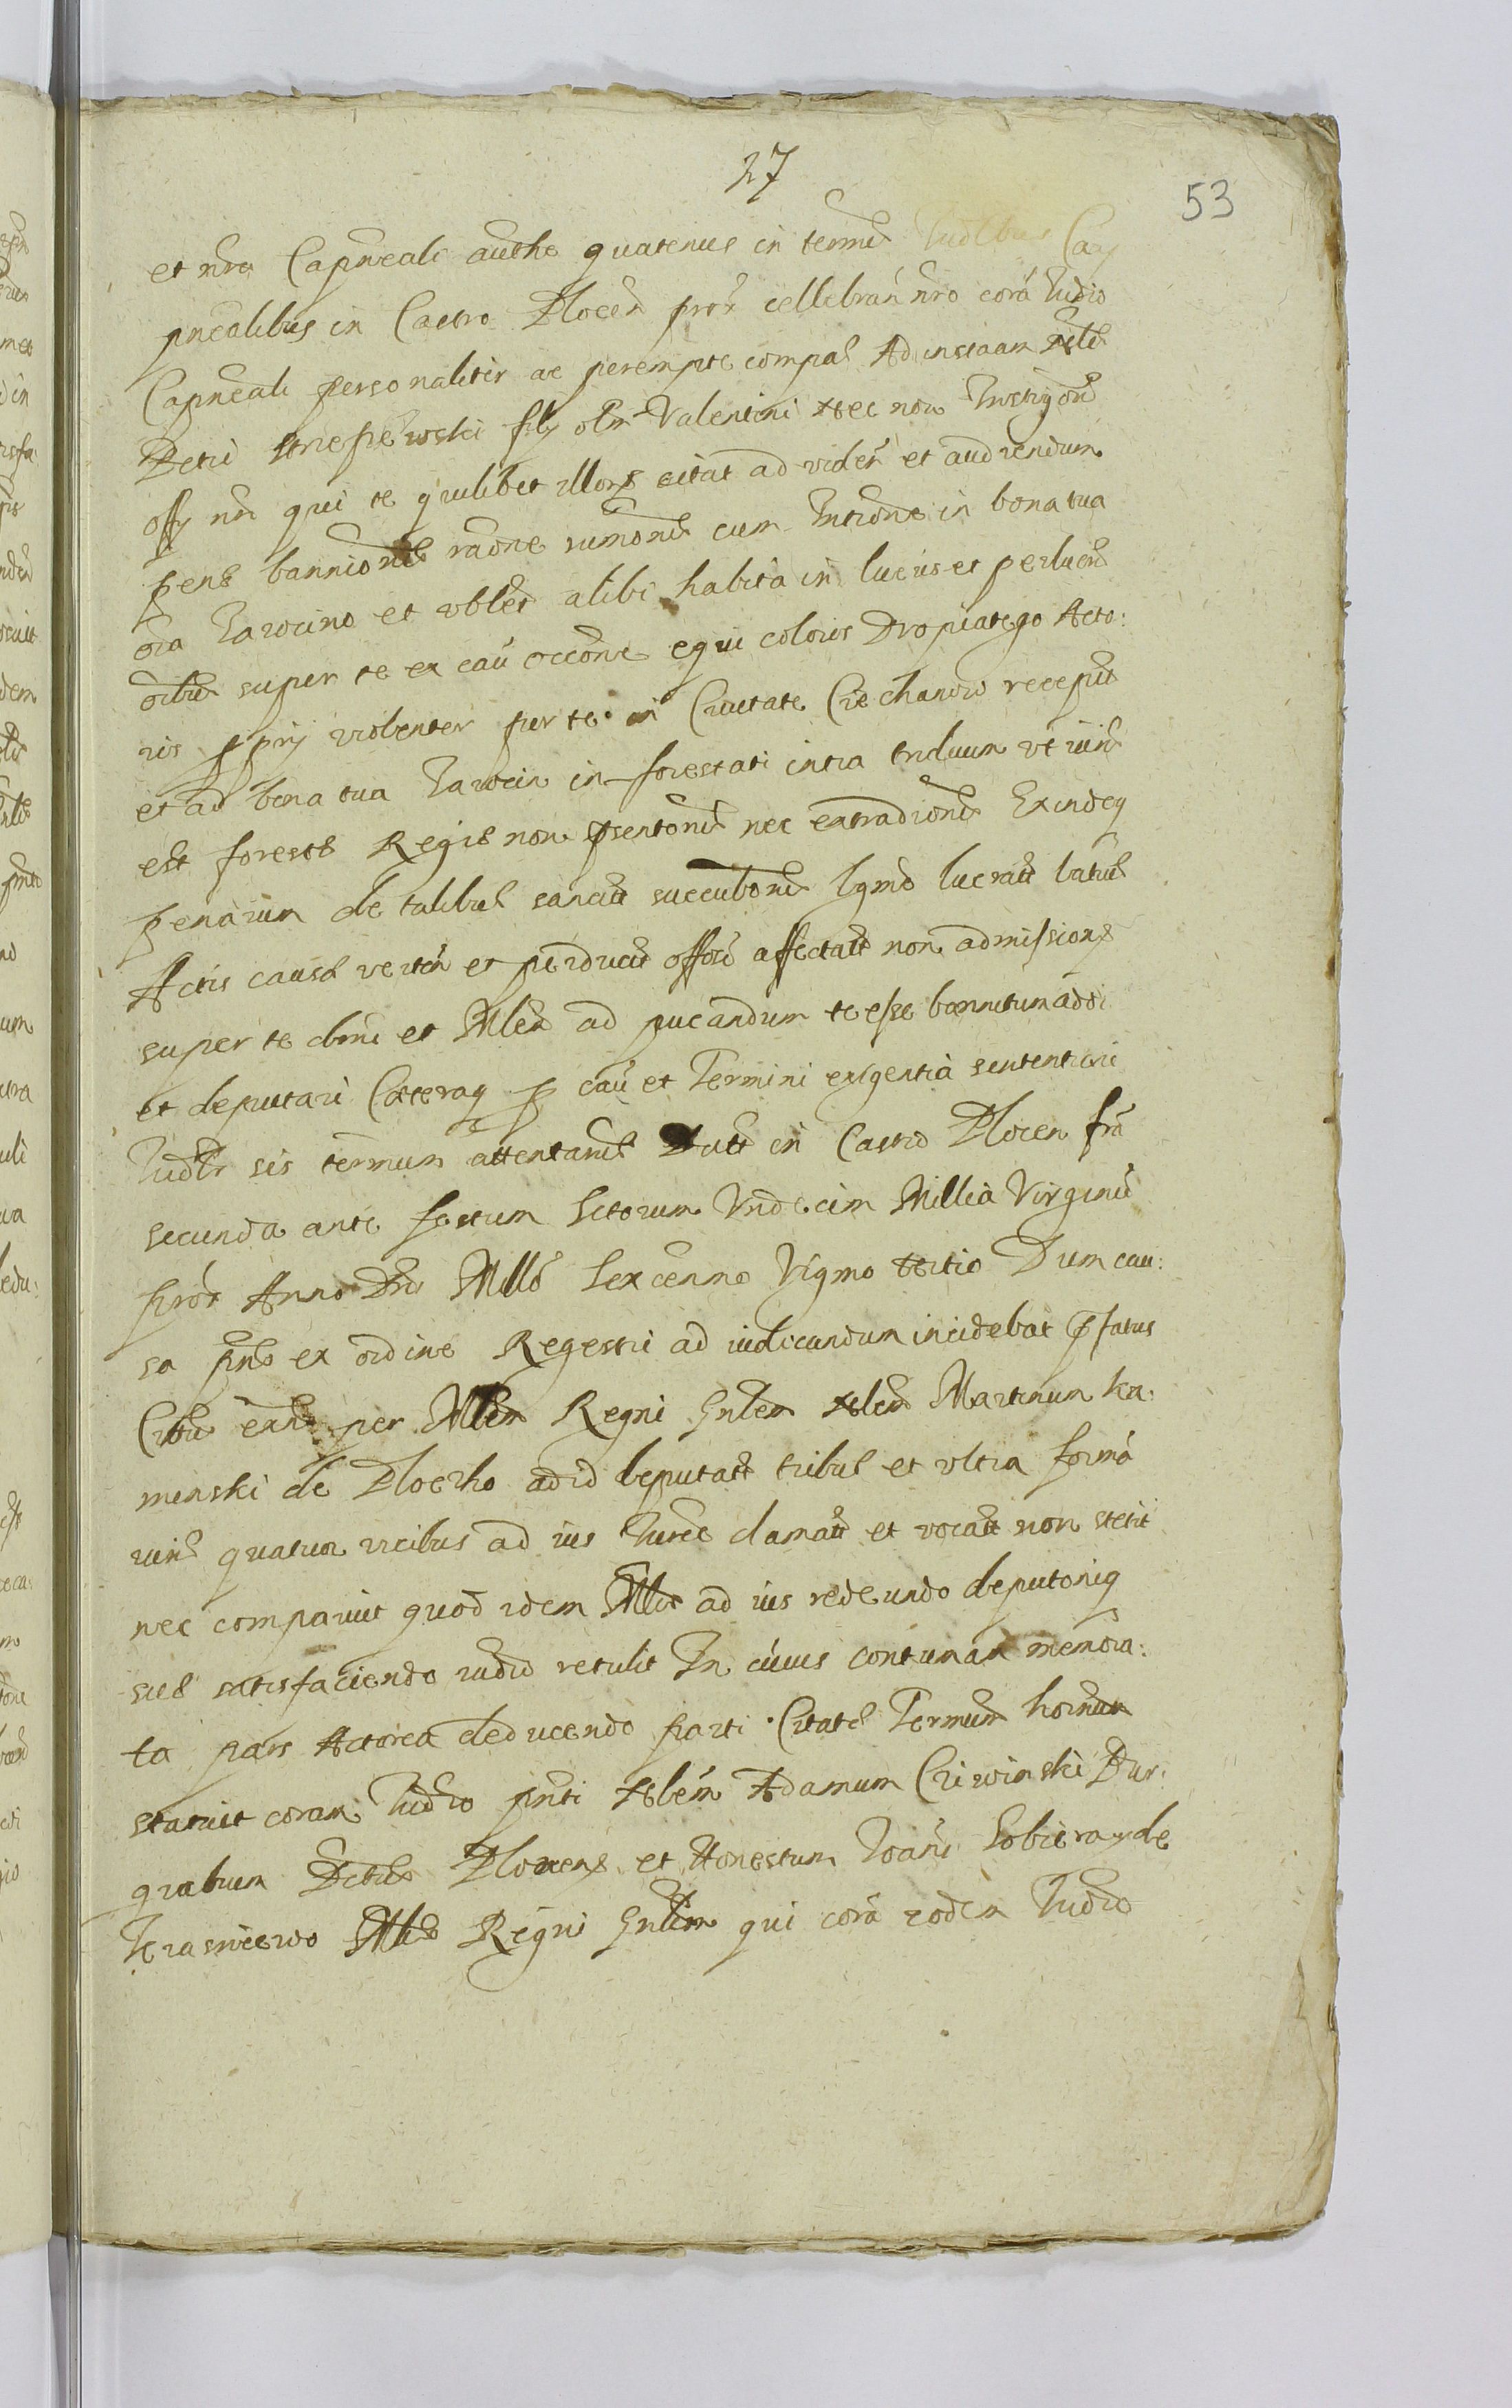 27
53
et nra Capneali authe quatenus in termis Iudlbus Cap
pnealibus in Castro Plocen prox cellebran nro cora Iudio
Capneali personaliter ac perempte compas Ad instaam Nlis
Petri filij olim Valentini Nec non Instigoris
offy nri qui te quilibet illorz citat ad viden et audiendum
penas bannionis raone rumonis cum Intione in bona tua
oia Iarocino et vblt alibi habita in lucris et perlucris
oibus super te ex cau occone equi coloris Dropiatego Acto:
ris pprij violenter per te in Ciuitate Ciechanow recepti
et ad bona tua Iarocin in forestati intra triduum vt iuris
est foreste Regie non psentonis nec extradionis Exindeq
penarum de talibus sancit succubonis lqmo lucratt latius
Actis causa verten et perducit offori affectatt non admissionz
super te dbni et Mlem ad pucandum te esse bannitum addi
et deputari Caeteraq p cau et Termini exigentia sententiari
Iudlr sis termum attentaurs Datt in Castro Plocen fra
secunda ante festum Sctorum Vndecim Millia Virginu
prox Anno Dni Millo Sexcenmo Vigmo tertio Dum cau:
sa pns ex ordine Regestri ad iudicandum incidebat pfatus
Citus exns per Mlem Regni Gnlem Nlem Martinum Ka:
menski de Plocko ad id deputatt tribus et vltra forma
iuris quatuor vicibus ad ius Iurec clamatt et vocatt non stetit
nec comparuit quod idem Mlis ad ius redeundo deputoniq
sue satisfaciendo iudio retulit In cuius contuman memora:
ta pars Actorea deducendo parti Citate Termum hornum
statuit coram Iudio pnti Nlem Adamum Criwinski Bur:
grabium Plocens et Honestum Ioane Sobieray de
Krasniewo Mlis Regni Gnlem qui cora eodem Iudio